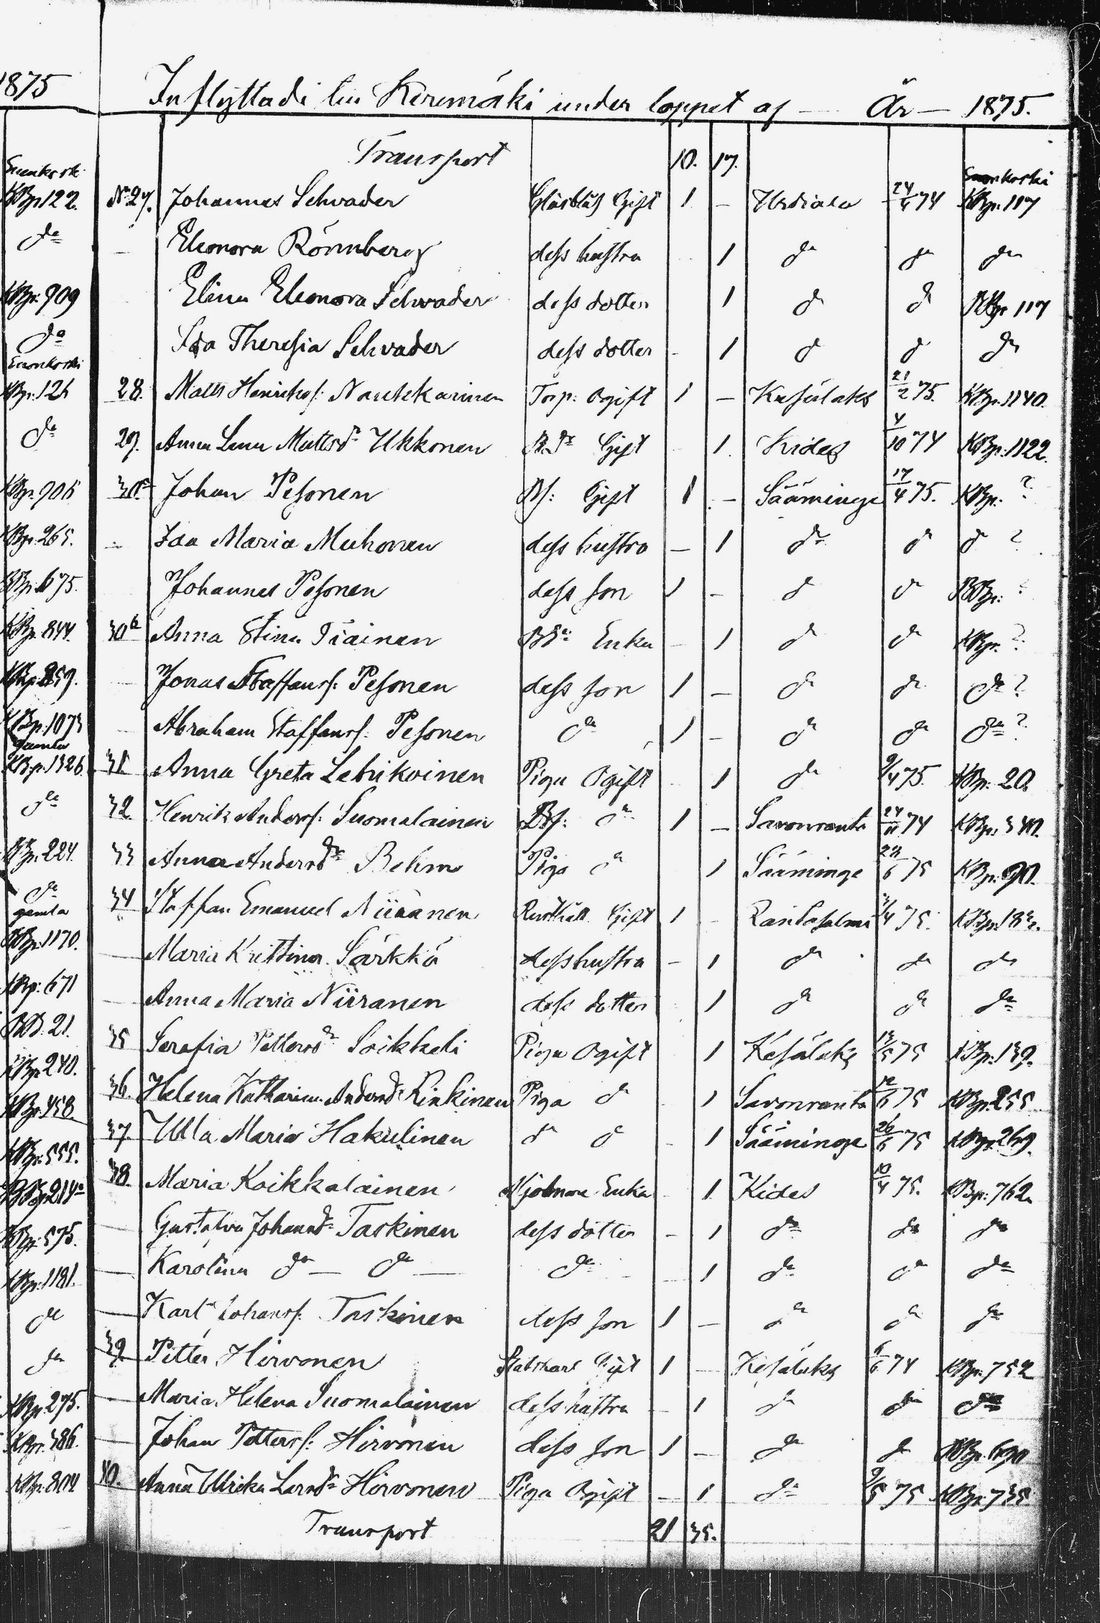 1875
Inflyttade till Kerimäki under loppet af — År — 1875.
Transport 10. 17.
Enonkoski Enonkoski
KBp. 122. No 27. Johannes Schrader Glasblås. Gift 1 — Urdiala 24/4 74 KBp. 117
do — Eleonora Rönnberg dess hustru 1 do do do
KBp. 909 Elina Eleonora Schrader dess dotter 1 do do KBp 117
do Ida Theresia Schrader dess dotter - 1 do do do
Enonkoski
KBp. 121 28. Matts Henrikss: Nautkarinen Torp: Ogift 1 — Kesälaks 21/2 75. KBp. 1140.
do 29. Anna Lena Mattsdr Ukkonen Gift 1. Kides 4/10 74 KBp. 1122.
KBp. 906 30a Johan Pesonen Bs: Gift 1 — Sääminge 17/4 75. KBp. ?
KBp. 265. — Ida Maria Muhonen dess hustru — 1 do do do ?
KBp. 675. Johannes Pesonen dess son 1 — do do KBp. ?
KBp. 844. 30b Anna Stina Tiainen Enka - 1 do do KBp. ?
KBp. 859. — Jonas Staffanss: Pesonen dess son 1 — do do do ?
KBp. 1073 — Abraham Staffanss: Pesonen do 1 — do do do ?
gamla
KBp. 1326. 31 Anna Greta Leorikoinen Piga Ogift 1 do 9/4 75. KBp. 20.
do 32 Henrik Anderss: Suomalainen Bs: do 1 — Savonranta 24/11 74 KBp. 340.
KBp. 224. 33 Anna Andersdr Behm Piga do 1 Sääminge 24/6 75 KBp. 90.
do
gamla 34 Staffan Emanuel Niiranen Gift 1 - Rantasalmi 4 75.
KBp. 1170. — Maria Kristina Särkkä dess hustru — 1 do do do
KBp. 671 — Anna Maria Niiranen dess dotter 1 do do do
21. 35 Serafia Pettersdr Soikkeli Piga Ogift 1 Kesälaks 75 KBp. 139.
KBp. 240. 36. Helena Katharina Andersdr Rinkinen Piga do 1 Savonranta 12/6 75 KBp. 255
KBp. 458 37 Ulla Maria Hakulinen do do - 1 Sääminge 26/6 75 KBp. 269.
KBp. 555. 38. Maria Koikkalainen Enka 1 Kides 10/4 75. KBp. 762.
KBp. 575. — Gustafva Johansdr Taskinen dess dotter - 1 do do do
KBp. 1181. — Karolina do — do — do 1 do do do
do — Karl Johanss: Taskinen dess son 1 — do do do
do 39 Petter Hirvonen Gift 1 — Kesälaks 6/6 74 KBp. 752
KBp. 275. — Maria Helena Suomalainen dess hustru — 1 do do do
KBp. 386. — Johan Petterss: Hirvonen dess son 1 — do do KBp. 690
KBp. 804 40. Anna Ulrika Larsdr Hirvonen Piga Ogift — 1 do 9/5 75 KBp. 735
Transport 21 35.